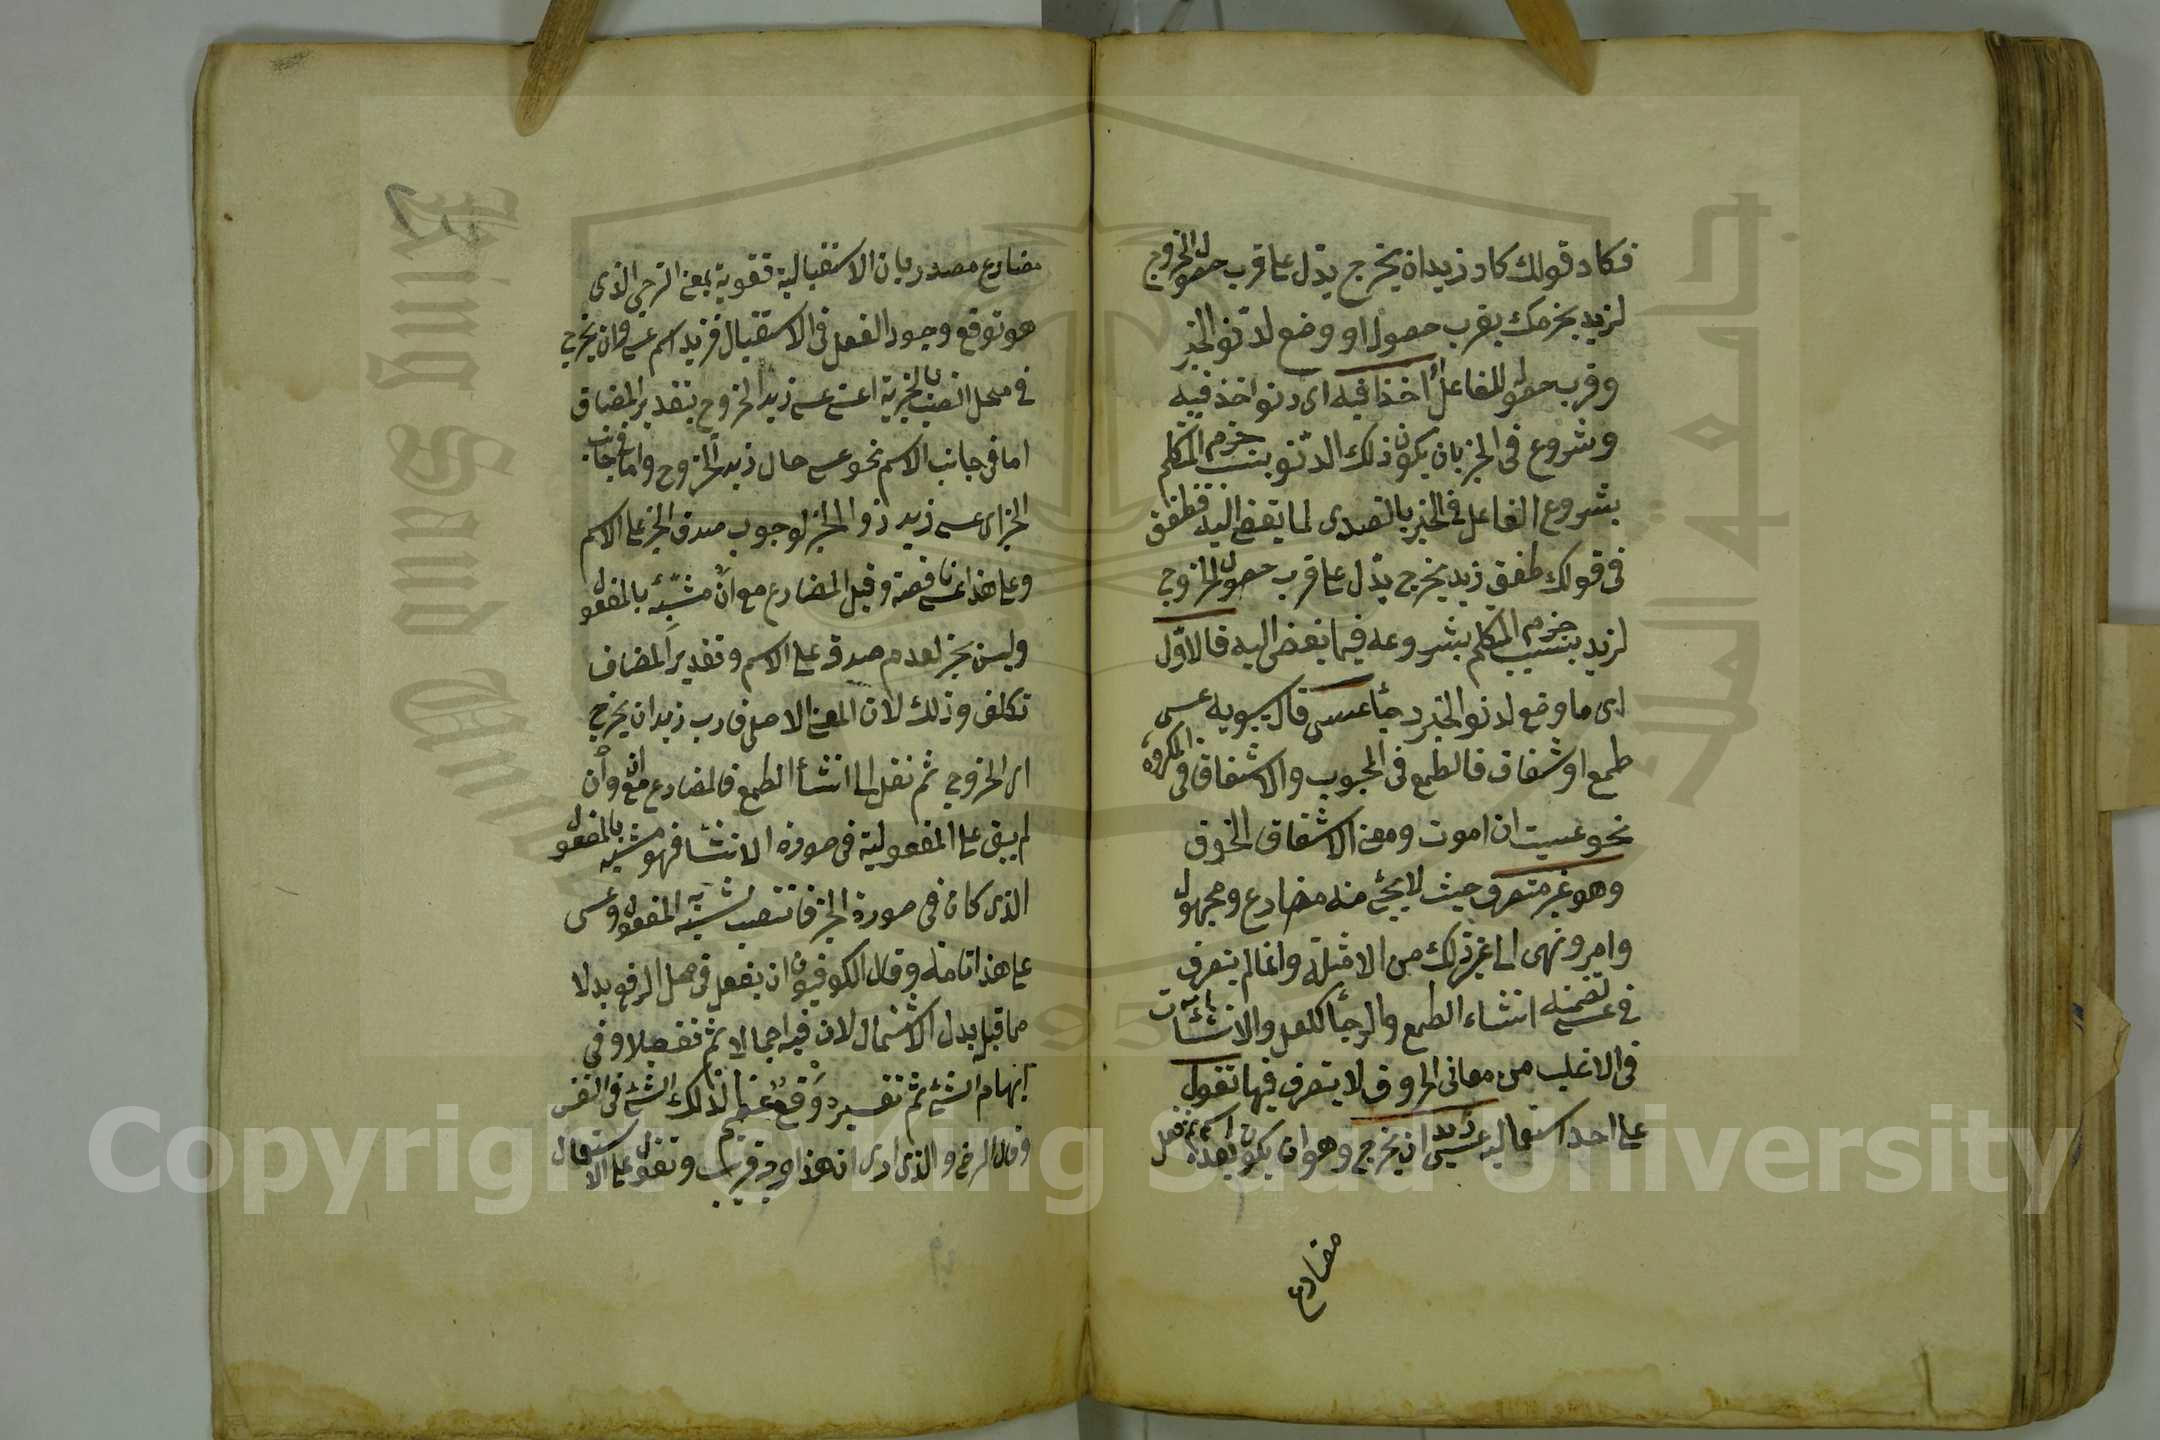 فكاد قولك كاد زيد ان يخرج يدل على قرب حصول الخروج
لزيد بجزمك بقرب حصوله او وضع لدنو الخبر
وقرب حصوله للفاعل اخذا فيه اى دنو اخذ فيه
وشروع فى الخبر بان يكون ذلك الدنو بسبب جزم المتكلم
بشروع الفاعل فى الخبر بالتصدى لما يفضى اليه فطفق
فى قولك طفق زيد يخرج يدل على قرب حصول الخروج
لزيد بسبب جزم المتكلم بشروعه فيما يفضى اليه فالاول
اى ما وضع لدنو الخبر رجاء عسى قال سيبويه عسى
طمع او اشفاق فالطمع فى المحبوب والاشفاق فى المكروه
نحو عسيت ان اموت ومعنى الاشفاق الخوف
وهو غير متصرف حيث لا يجئ منه مضارع ومجهول
وامر ونهى الى غير ذلك من الامثلة وانما لم يتصرف
فى عسى لتضمنه انشاء الطمع والرجاء كلعل والانشائيات
فى الاغلب من معانى الحروف لا يتصرف فيها تقول
على احد استعماليه عسى زيد ان يخرج وهو ان يكون بعده اسم ثم فعل
مضارع
مضارع مصدر بان الاستقبالية تقوية لمعنى الترجى الذى
هو توقع وجود الفعل فى الاستقبال فزيد اسم عسى وان يخرج
فى محل النصب بالخبرية اى عسى زيد الخروج بتقدير المضاف
اما فى جانب الاسم نحو عسى حال زيد الخروج واما فى جانب
الخبر اى عسى زيد ذو الخروج لوجوب صدق الخبر على الاسم
وعلى هذا عسى ناقصة وقيل المضارع مع ان مشبه بالمفعول
وليس بخبر لعدم صدقه على الاسم وتقدير المضاف
تكلف وذلك لان المعنى الاصلى قارب زيد ان يخرج
اى الخروج ثم نقل الى انشاء الطمع فالمضارع مع ان وان
لم يبق على المفعولية فى صورة الانشاء فهو مشبه بالمفعول
الذى كان فى صورة الخبر فانتصب لشبهه المفعول وعسى
على هذا تامة وقال الكوفيون ان يفعل فى محل الرفع بدلا
مما قبله بدل الاشتمال لان فيه اجمالا ثم تفصيلا وفى
ابهام الشئ ثم تفسيره وقع عظيم لذلك الشئ فى النفس
وقال الرضى والذى ارى ان هذا وجه قريب وتقول على الاستعمال